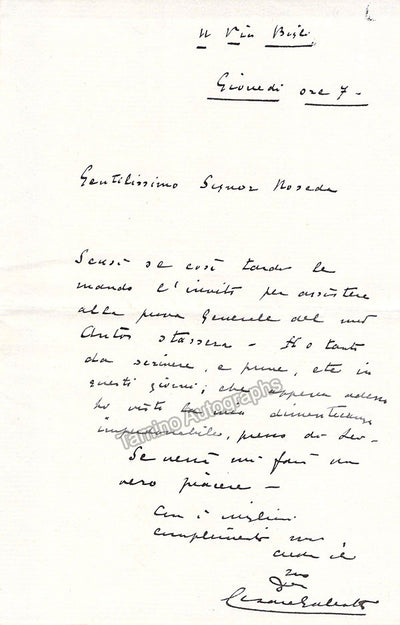 11 Via Bigli
Giovedi ore 7 -
Gentilissimo Signor Noseda
Scusi se così tardi le
mando l'invito per assistere
alla prova Generale del mio
Anton stassera - Ho tanto
da scrivere, e prove, etc in
questi giorni, che appena adesso
ho visto la mia dimenticanza
imperdonabile, presso di Lei -
Se verrà mi farà un
vero piacere -
Con i migliori
complimenti mi
creda il
suo
Cesare Galeotti
Tamino Autographs